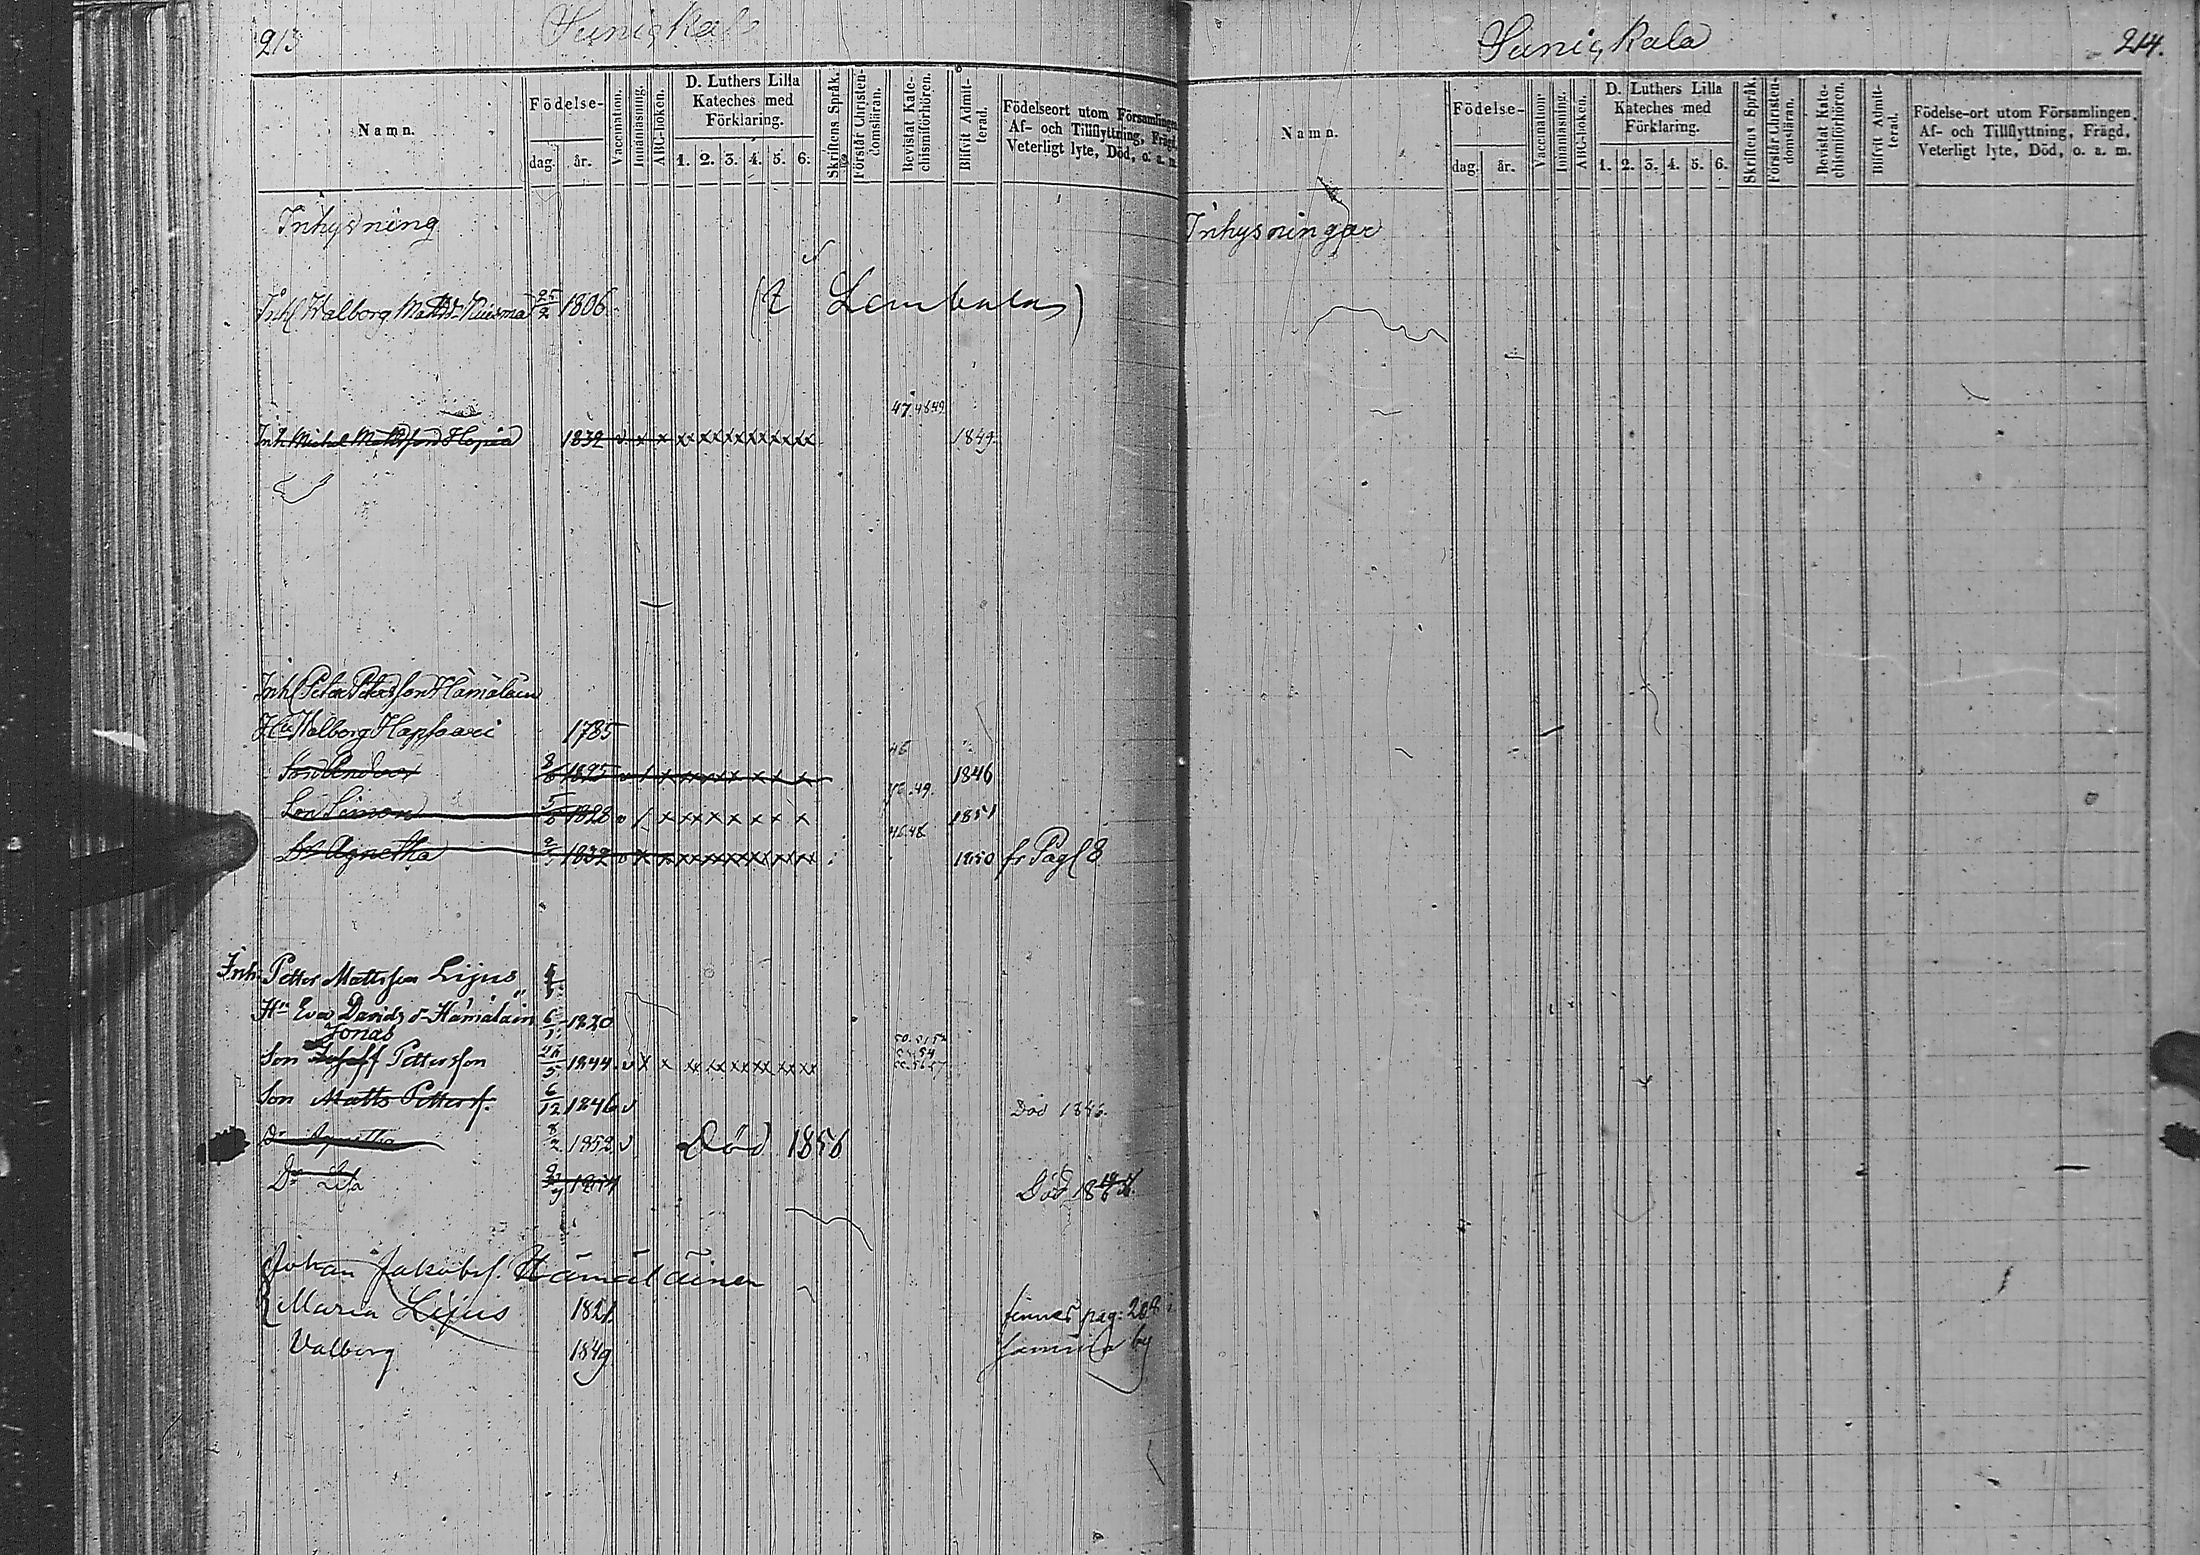 213 Sunigkala
Namn. Födelse- dag. år. Vaccination. Innanläsning. ABC-boken. D. Luthers Lilla Kateches med Förklaring. 1. 2. 3. 4. 5. 6. Skriftens Språk. Förstår Christendomsläran. Bevistat Katechismiförhören. Blifvit Admitterad. Födelseort utom Församlingen, Af- och Tillflyttning, Frägd, Veterligt lyte, Död, o. a. m.
Inhysning
Inh Walborg Mattsd. 25/2 1806 (t Lembala)
47 48 49
Inh. Michel Mattsson Hapia 1832 v x x xx xx xx xx xx xx 1849
Inh Peter Petersson Hämäläin
Hu Walborg Hapsaari 1785
46
Son Andors 1825 1846
46.49.
Son Simon 1828 1851
46.48
Dr Agnetha 1832 1850 fr Pag 8
Inh. Petter Mattsson Lijus
Hu Eva Davids dr Hämäläin 6/1 1820
Jonas
Son Josef Pettersson 5 1844 v x x xx xx xx xx xx xx
Son Matts Petters. 6/12 1846 v Död 1846.
Dr Agnetha 8/2 1852 v Död 1856
Dr Lisa Död 18
Johan Jakobs. Hämäläinen
Maria Lijus 1821 finnes pag: 208 i
Valborg 1849 samma by
Sunigkala 214.
Namn. Födelse- dag. år. Vaccination. Innanläsning. ABC-boken. D. Luthers Lilla Kateches med Förklaring. 1. 2. 3. 4. 5. 6. Skriftens Språk. Förstår Christendomsläran. Bevistat Katechismiförhören. Blifvit Admitterad. Födelse-ort utom Församlingen, Af- och Tillflyttning, Frägd, Veterligt lyte, Död, o. a. m.
Inhysningar